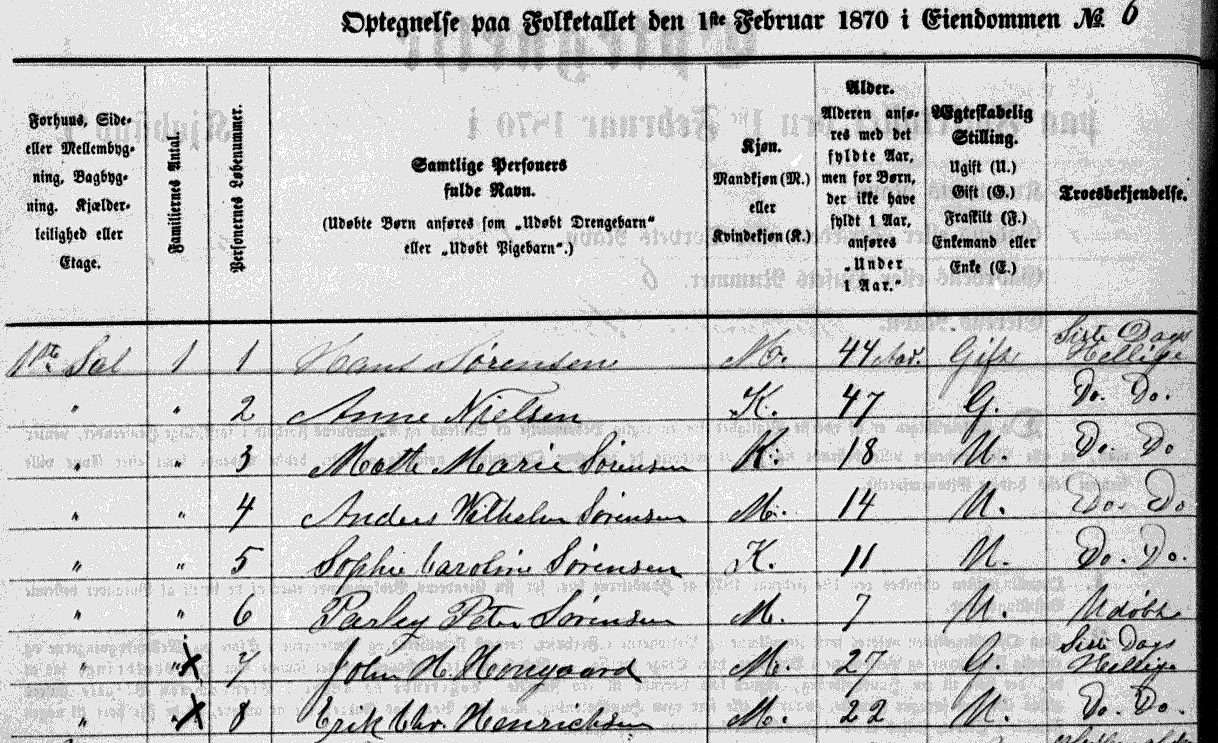 Optegnelse paa Folketallet den 1ste Februar 1870 i Eiendommen No. 6
Forhuus, Side-
eller Mellembyg-
ning, Bagbyg-
ning. Kjælder-
leilighed eller
Etage.
Familiernes Antal.
Personernes Løbenummer.
Samtlige Personers
fulde Navn.
(Udøbte Børn anføres som „Udøbt Drengebarn“
eller „Udøbt Pigebarn“.)
Kjøn.
Mandkjøn (M.)
eller
Kvindekjøn (K.)
Alder.
Alderen anfø-
res med det
fyldte Aar,
men for Børn,
der ikke have
fyldt 1 Aar,
anføres
„Under
1 Aar.“
Ægteskabelig
Stilling.
Ugift (U.)
Gift (G.)
Fraskilt (F.)
Enkemand eller
Enke (E.)
Troesbekjendelse.
1ste Sal 1 1 Hans Sørensen M. 44 Aar. Gift Siste Dags Hellige
" " 2 Anne Nielsen K. 47 G. Do. Do.
" " 3 Mette Marie Sørensen K. 18 U. Do. Do
" " 4 Anders Wilhelm Sørensen M. 14 U. Do. Do
" " 5 Sophie Caroline Sørensen K. 11 U. Do. Do.
" " 6 Parley Peter Sørensen M. 7 U. Udøbt
" "X 7 John H. Hougaard M. 27 G. Siste Dags Hellige
" "X 8 Erik Chr. Henrichsen M. 22 U. Do. Do.